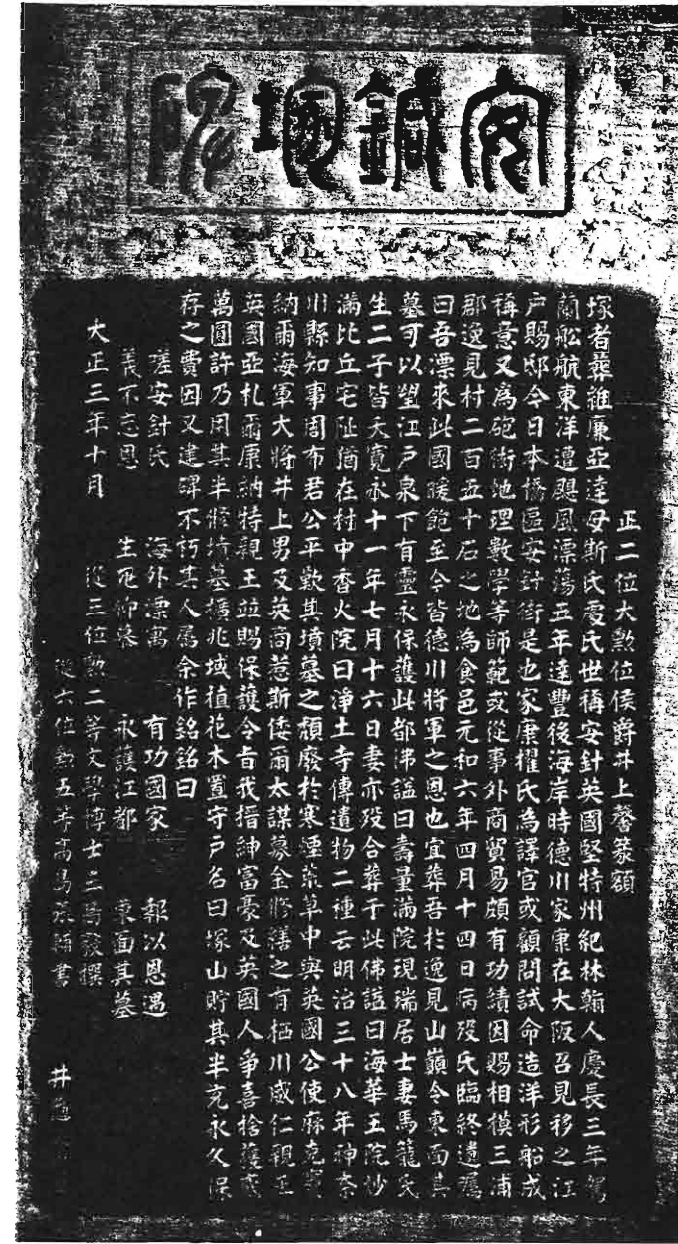 安鍼塚碑
正二位大勲位侯爵井上馨篆額
塚者葬維廉亞達母斯氏處氏世稱安針英國堅特州紀林翰人慶長三年駕
蘭舩航東洋遭颶風漂蕩五年達豐後海岸時德川家康在大阪召見移之江
戸賜邸今日本橋區安針街是也家康擢氏為譯官或顧問試命造洋形船成
稱意又爲砲術地理數學等師範或從事外商貿易頗有功績因賜相摸三浦
郡逸見村二百五十石之地為食邑元和六年四月十四日病歿氏臨終遺囑
曰吾漂來此國暖飽至今皆德川將軍之恩也宜葬吾於逸見山巓令東面其
墓可以望江戸泉下有靈永保護此都沸謚曰壽量滿院現瑞居士妻馬籠氏
生二子皆夭寛永十一年七月十六日妻亦歿合葬于此佛謚曰海華王院妙
滿比丘宅阯猶在村中香火院曰淨土寺傳遺物二種云明治三十八年神奈
川縣知事周布君公平歎其墳墓之頽廢於寒煙荒草中與英國公使麻克
納爾海軍大將井上男及英商惹斯倭爾太謀募金修繕之有栖川威仁親王
英國亞札爾康納特親王並賜保護令旨我搢紳富豪及英國人争喜捨獲
萬圓許乃用其半修墳墓擴兆域植花木置守戸名曰塚山貯其半充永久保
存之費因又建碑不朽其人屬余作銘銘曰
嗟安針氏 海外漂寓 有功國家 報以恩遇
義不忘恩 生死仰慕 永護江都 東面其墓
大正三年十月 從三位勲二等文學博士三島毅撰
從六位勲五等高島 書
井